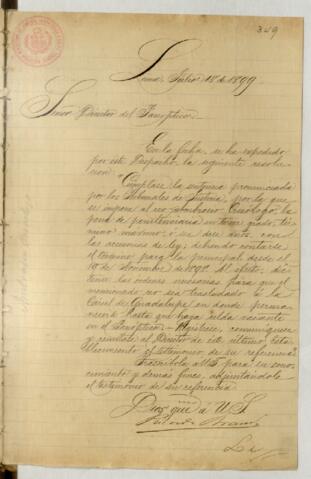 349
Lima, Julio 18 de 1899
Señor Director del Panóptico
En la fecha, se ha expedido
por este Despacho, la siguiente resolu-
cion:
"Cúmplase la sentencia pronunciada
por los Tribunales de Justicia, por la que
se impone al reo Ambrosio, la
pena de penitenciaría en tercer grado, tér-
mino máximo, ó sea doce años, con
las accesorias de ley; debiendo contarse
el término para la principal desde el
19 de Noviembre de 1892. Al efecto, díc-
tense las órdenes necesarias para que el
mencionado reo sea trasladado á la
Cárcel de Guadalupe en donde perma-
necerá hasta que haya celda vacante
en el Panóptico. Regístrese, comuníquese
y remítase al Director de este último Esta-
blecimiento el testimonio de su referencia"
Trascríbola á US. para su cono-
cimiento y demás fines, adjuntándole
el testimonio de su referencia
Dios gue. á US.